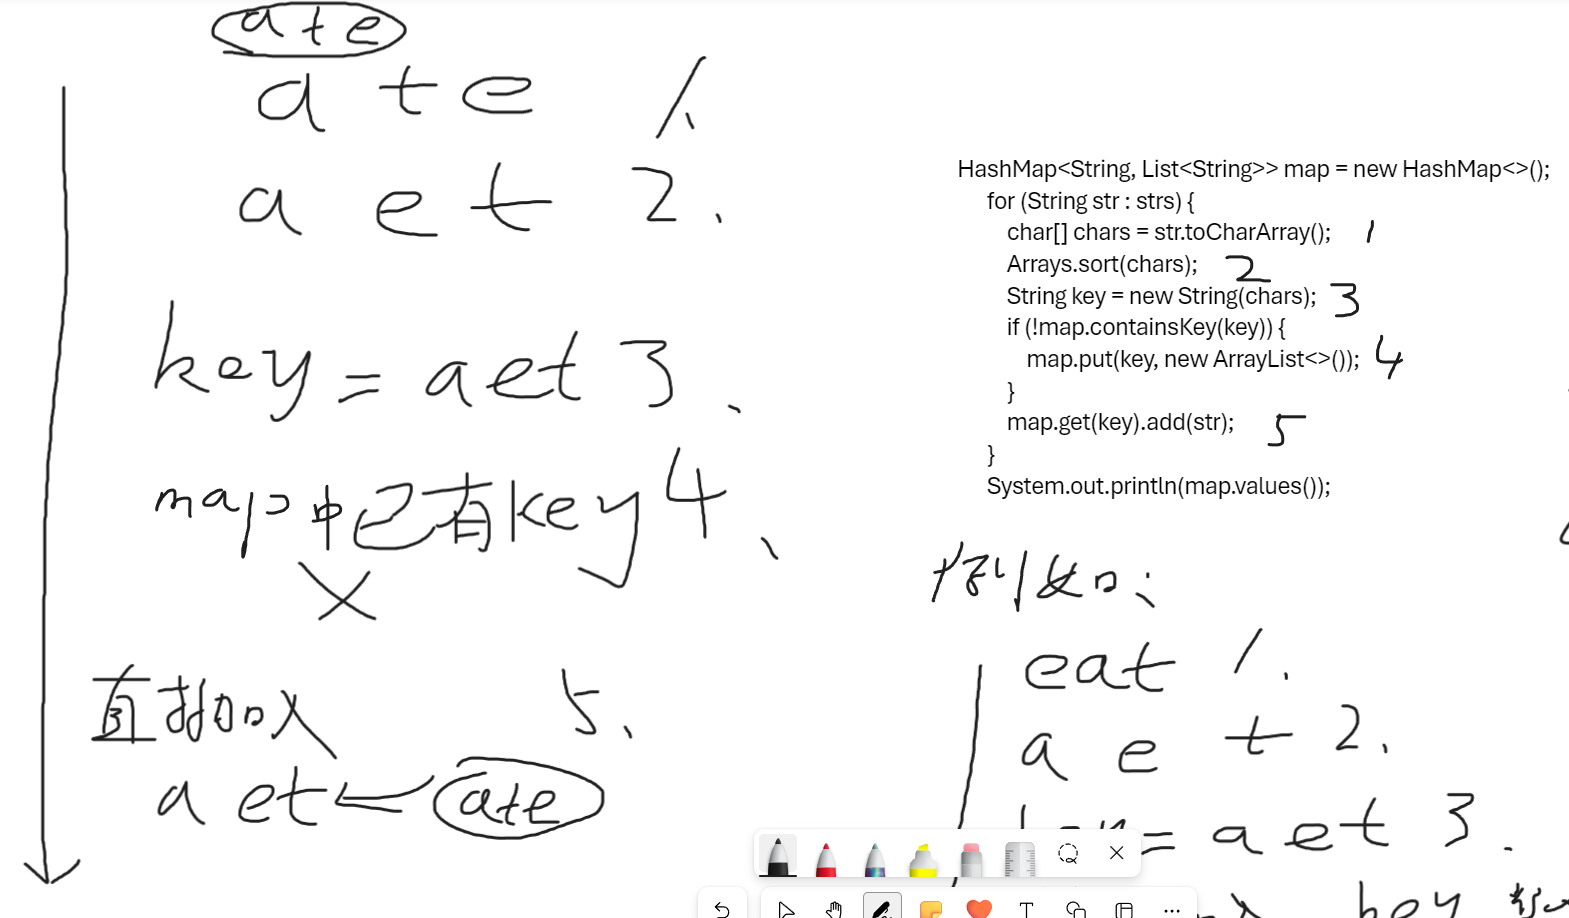 ate
ate 1.
aet 2.
key = aet 3.
map中已有key 4、
X
直接加入 5、
aet ← ate
HashMap<String, List<String>> map = new HashMap<>();
for (String str : strs) {
char[] chars = str.toCharArray(); 1
Arrays.sort(chars); 2
String key = new String(chars); 3
if (!map.containsKey(key)) {
map.put(key, new ArrayList<>()); 4
}
map.get(key).add(str); 5
}
System.out.println(map.values());
例如：
eat 1.
aet 2.
= aet 3.
key
T